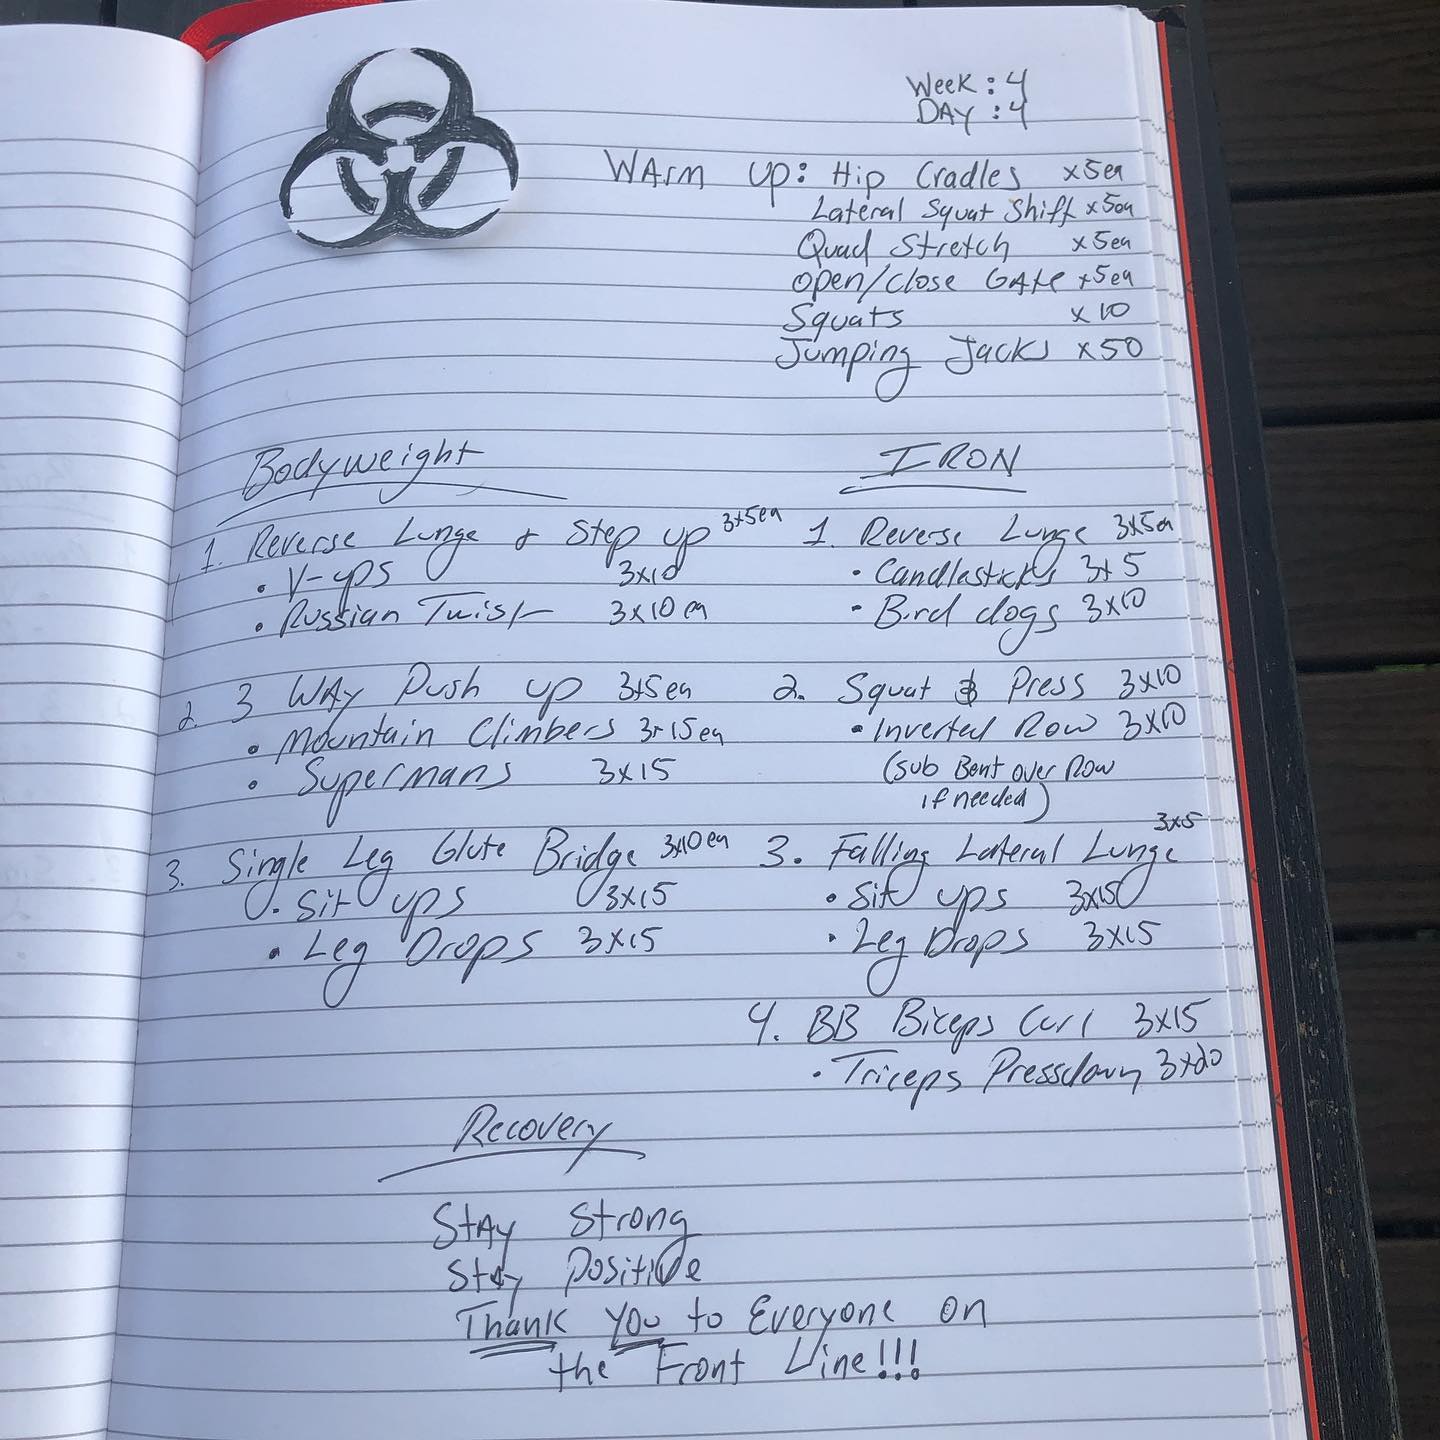 Week : 4
DAY : 4
WArm up: Hip Cradles x5ea
Lateral Squat Shift x5ea
Quad Stretch x5ea
Open/Close GAte x5ea
Squats x10
Jumping Jacks x50
Bodyweight
1. Reverse Lunge & Step up 3x5ea
• V-ups 3x10
• Russian Twist 3x10ea
2. 3 WAy Push up 3x5ea
• Mountain Climbers 3x15ea
• Supermans 3x15
3. Single Leg Glute Bridge 3x10ea
• Sit ups 3x15
• Leg Drops 3x15
IRON
1. Reverse Lunge 3x5ea
• Candlesticks 3x5
• Bird dogs 3x10
2. Squat & Press 3x10
• Inverted Row 3x10
(sub Bent over Row
if needed)
3. Falling Lateral Lunge 3x5
• Sit ups 3x15
• Leg Drops 3x15
4. BB Biceps Curl 3x15
• Triceps Pressdown 3x20
Recovery
StAy Strong
StAy Positive
Thank you to Everyone on
the Front Line!!!